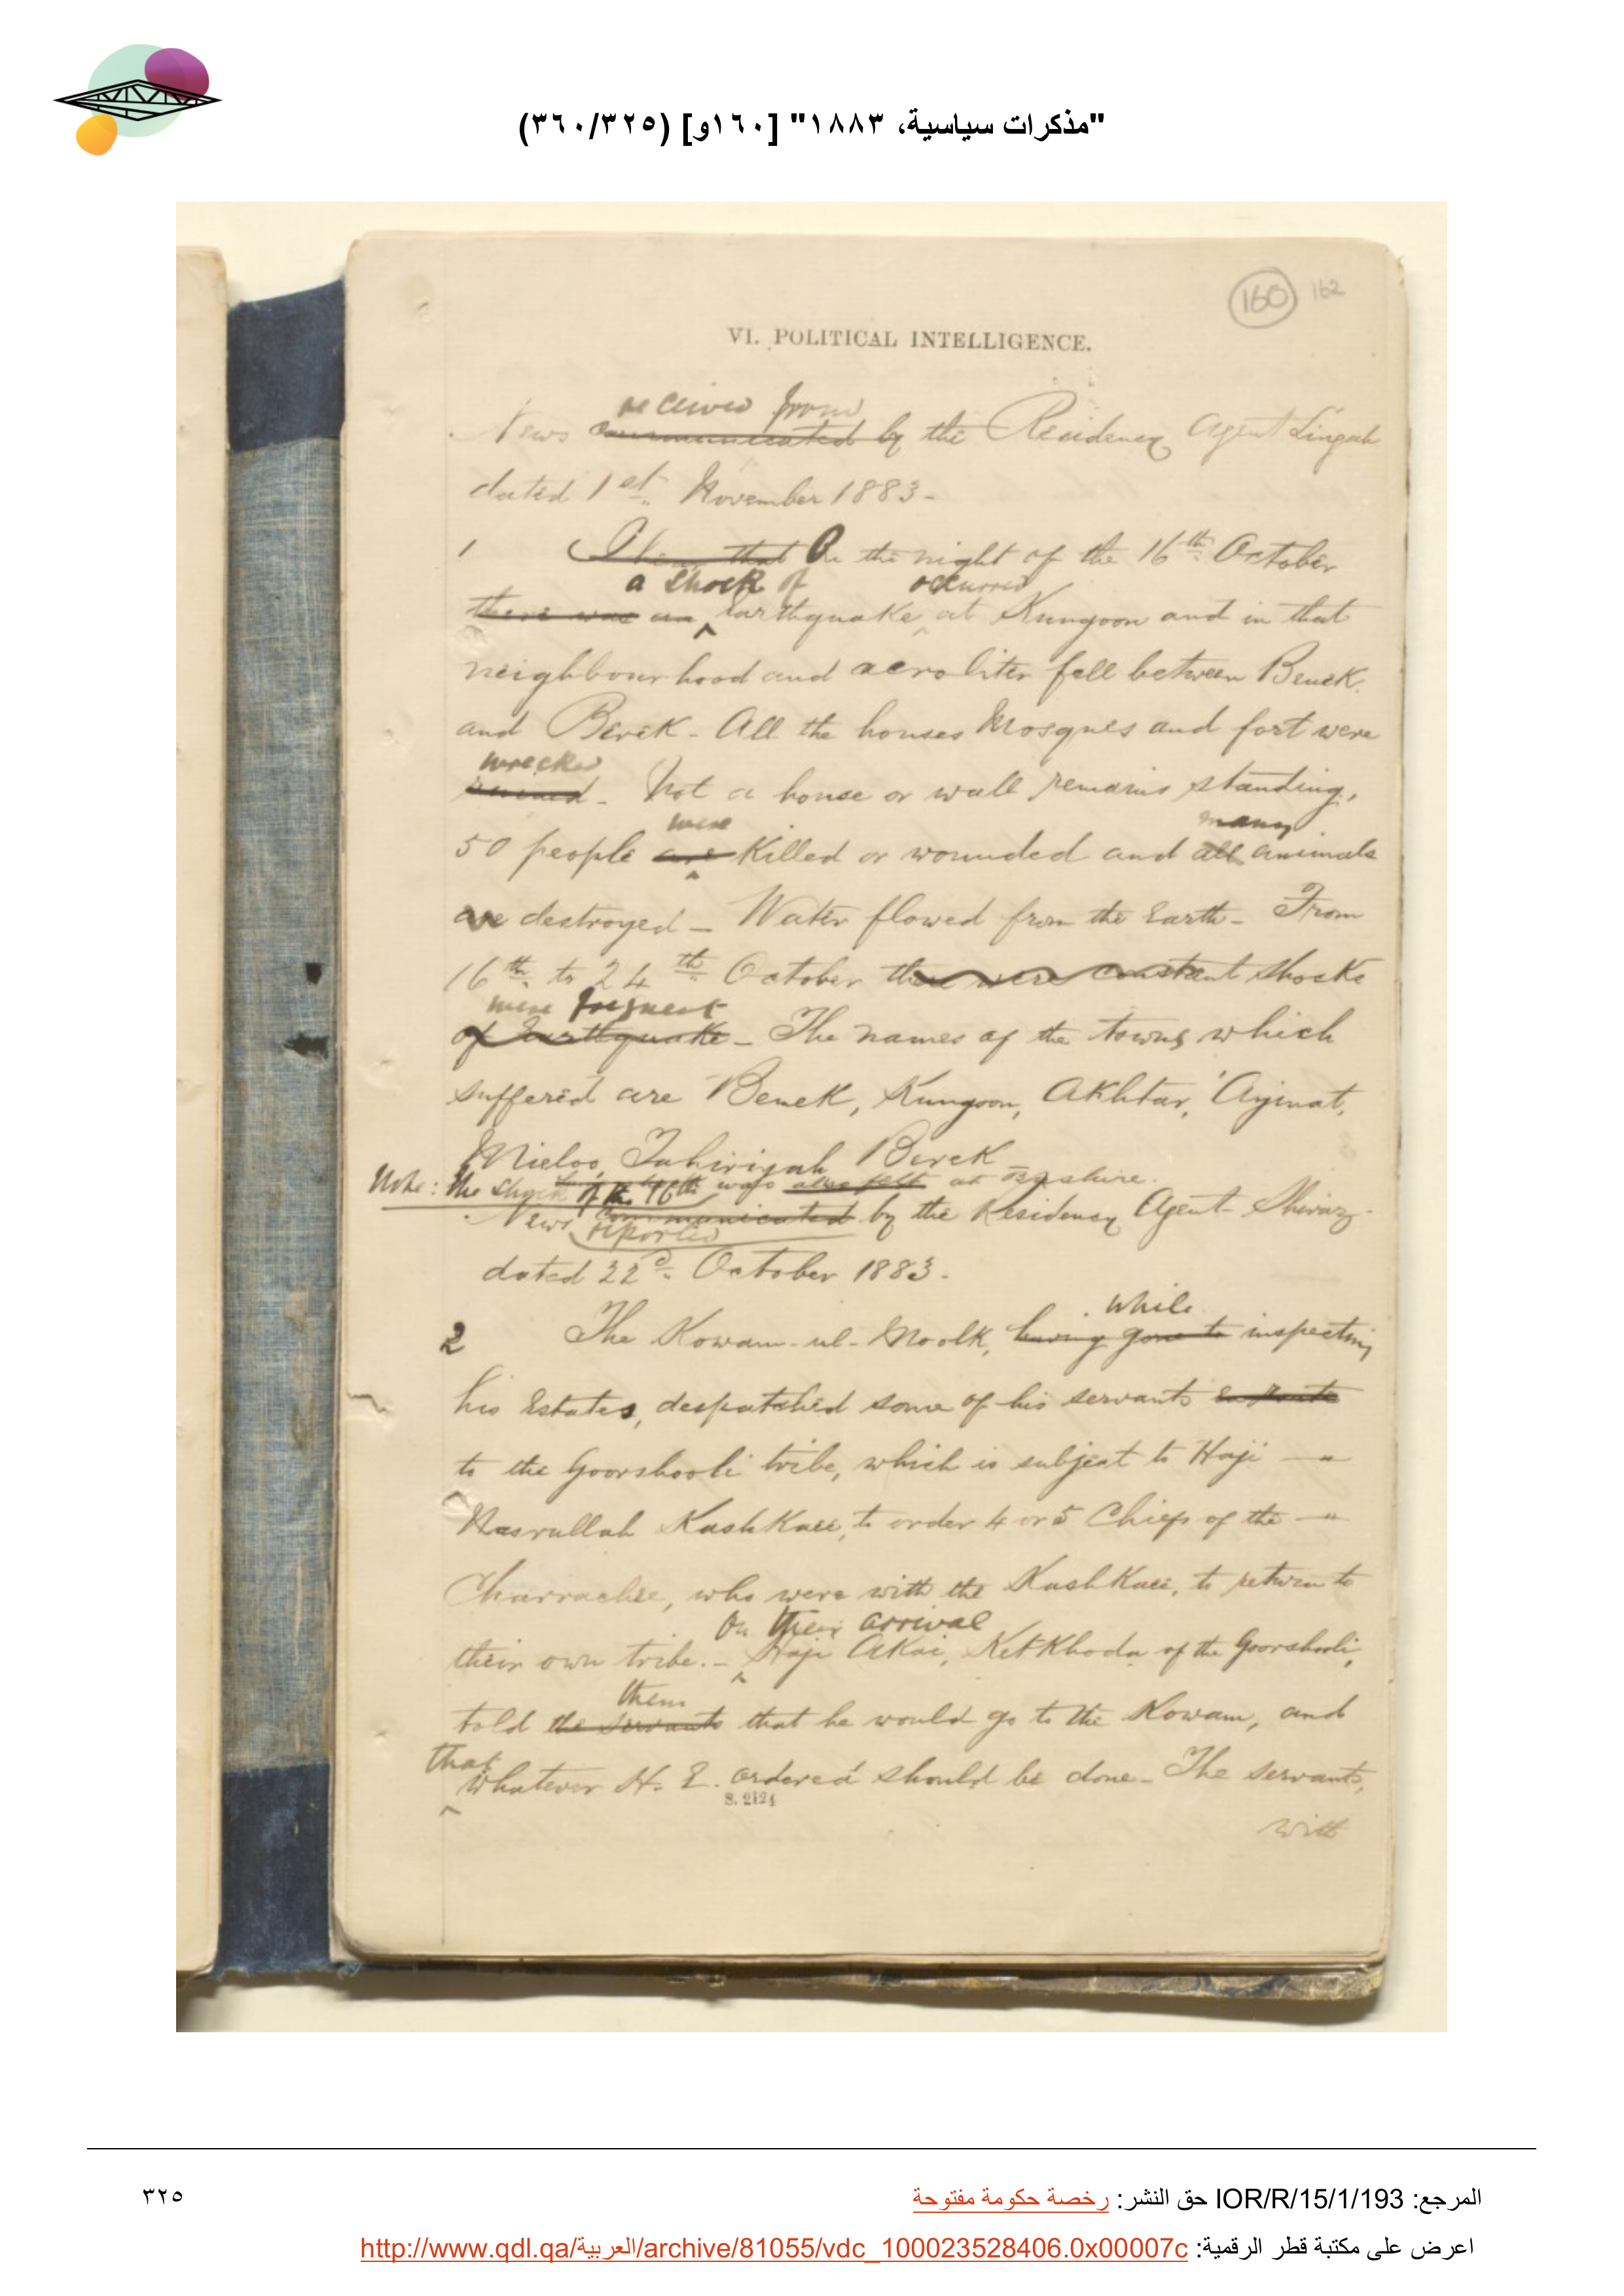 "مذكرات سياسية، ١٨٨٣" [١٦٠و] (٣٢٥/٣٦٠)
160 162
VI. POLITICAL INTELLIGENCE.
received from
News communicated by the Residency Agent Lingah
dated 1st November 1883-
1 that On the night of the 16th October
a shock of occurred
there was an Earthquake at Kungoon and in that
neighbourhood and aeroliter fell between Benek
and Berek - All the houses Mosques and fort were
wrecked
ruined - Not a house or wall remains standing,
were many
50 people are Killed or wounded and all animals
are destroyed - Water flowed from the Earth - From
16th to 24th October there were constant shocks
were frequent
of Earthquake - The names of the towns which
suffered are Benek, Kungoon, Akhtar, Ayinat,
Mieloo, Tahiriyah Berek -
Note: The shock of the 16th was also felt at Bushire.
News communicated by the Residency Agent Shiraz-
reported
dated 22d October 1883-
while
2 The Kowam-ul-Moolk, having gone to inspecting
his Estates, despatched some of his servants en route
to the Goorshooli tribe, which is subject to Haji -
Nasrullah KashKaee, to order 4 or 5 Chiefs of the -
Charrachee, who were with the KashKaee, to return to
On their arrival
their own tribe. - Haji AKai, KetKhoda of the Goorshooli,
them
told the servants that he would go to the Kowam, and
that
whatever H. E. ordered should be done - The servants,
S. 2124
with
المرجع: IOR/R/15/1/193 حق النشر: رخصة حكومة مفتوحة
٣٢٥
اعرض على مكتبة قطر الرقمية: http://www.qdl.qa/العربية/archive/81055/vdc_100023528406.0x00007c